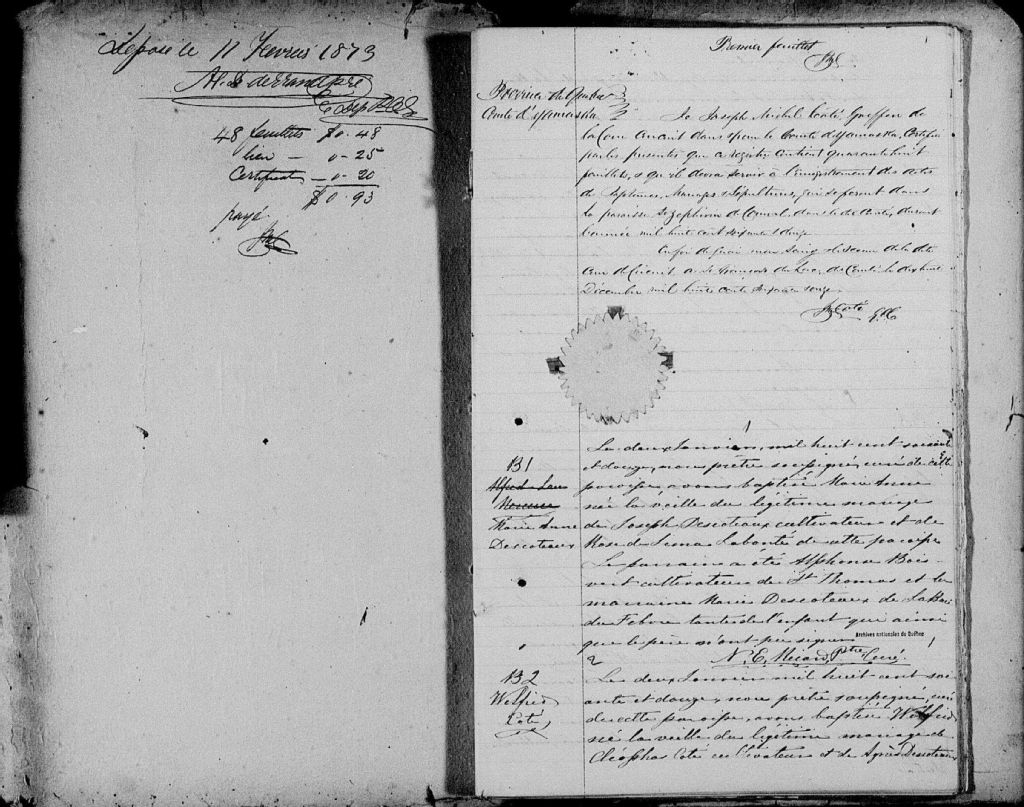 Déposé le 11 Février 1873
48 feuillets $0.48
lieu — 0-25
Certificat — 0-20
$0.93
payé
Premier feuillet
Province de Québec
Comté d'Yamaska
Je Joseph Michel Coté Greffier de
la Cour Circuit dans & pour le Comté d'Yamaska, Certifie
par les présentes que ce registre contient quarante huit
feuillets, & qu'il devra servir à l'enregistrement des actes
de Baptêmes, Mariages & Sépultures, qui se feront dans
la paroisse St Zephirin de Courval, dans le dit Comté, durant
l'année mil huit cent soixante & douze
En foi de quoi mon seing & le sceau de la dite
Cour de Circuit, à St François du Lac, dit Comté le dix huit
Décembre mil huit cent soixante & onze.
JM Coté GCC
1
B1
Marie Anne
Descoteaux
Le deux Janvier, mil huit cent soixante
et douze, nous prêtre soussigné, curé de cette
paroisse, avons baptisé Marie Anne
née la veille du légitime mariage
de Joseph Descoteaux cultivateur et de
Rose de Lima Labonté de cette paroisse
Le parrain a été Alphonse Bois-
vert cultivateur de St Thomas et la
marraine Marie Descoteaux de La Baie
du Febvre tante de l'enfant qui ainsi
que le père n'ont pu signer
Archives nationales du Québec
N. E. Ricard Ptre Curé.
2
B2
Wilfrid
Coté
Le deux Janvier mil huit cent soix-
ante et douze, nous prêtre soussigné, curé
de cette paroisse, avons baptisé Wilfrid
né la veille du légitime mariage de
Cléophas Coté cultivateur et de Agnès Descoteaux